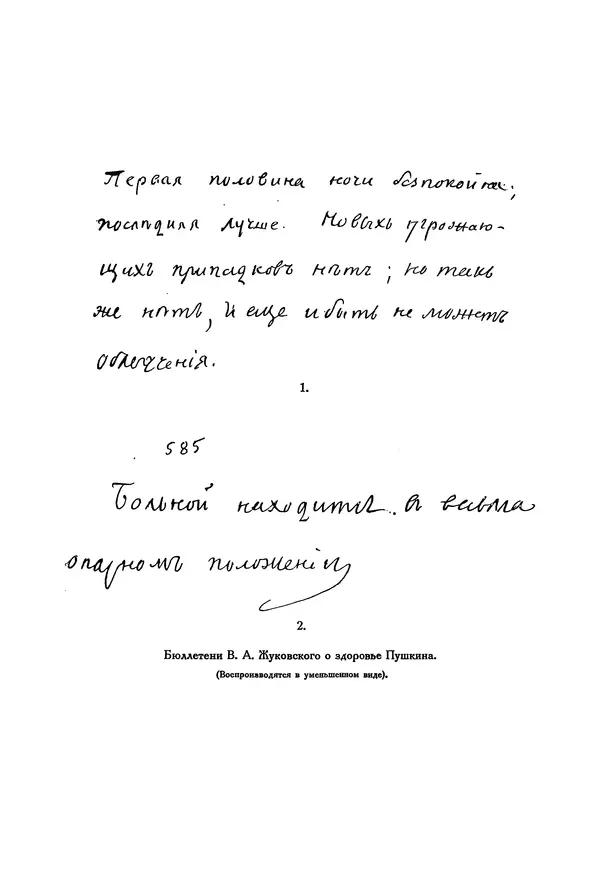 Первая половина ночи безпокойна;
последняя лучше. Новыхъ угрожаю-
щихъ припадковъ нѣтъ; но такъ
же нѣтъ, и еще и быть не можетъ
облегченія.
1.
585
Больной находится въ весьма
опасномъ положеніи
2.
Бюллетени В. А. Жуковского о здоровье Пушкина.
(Воспроизводятся в уменьшенном виде).